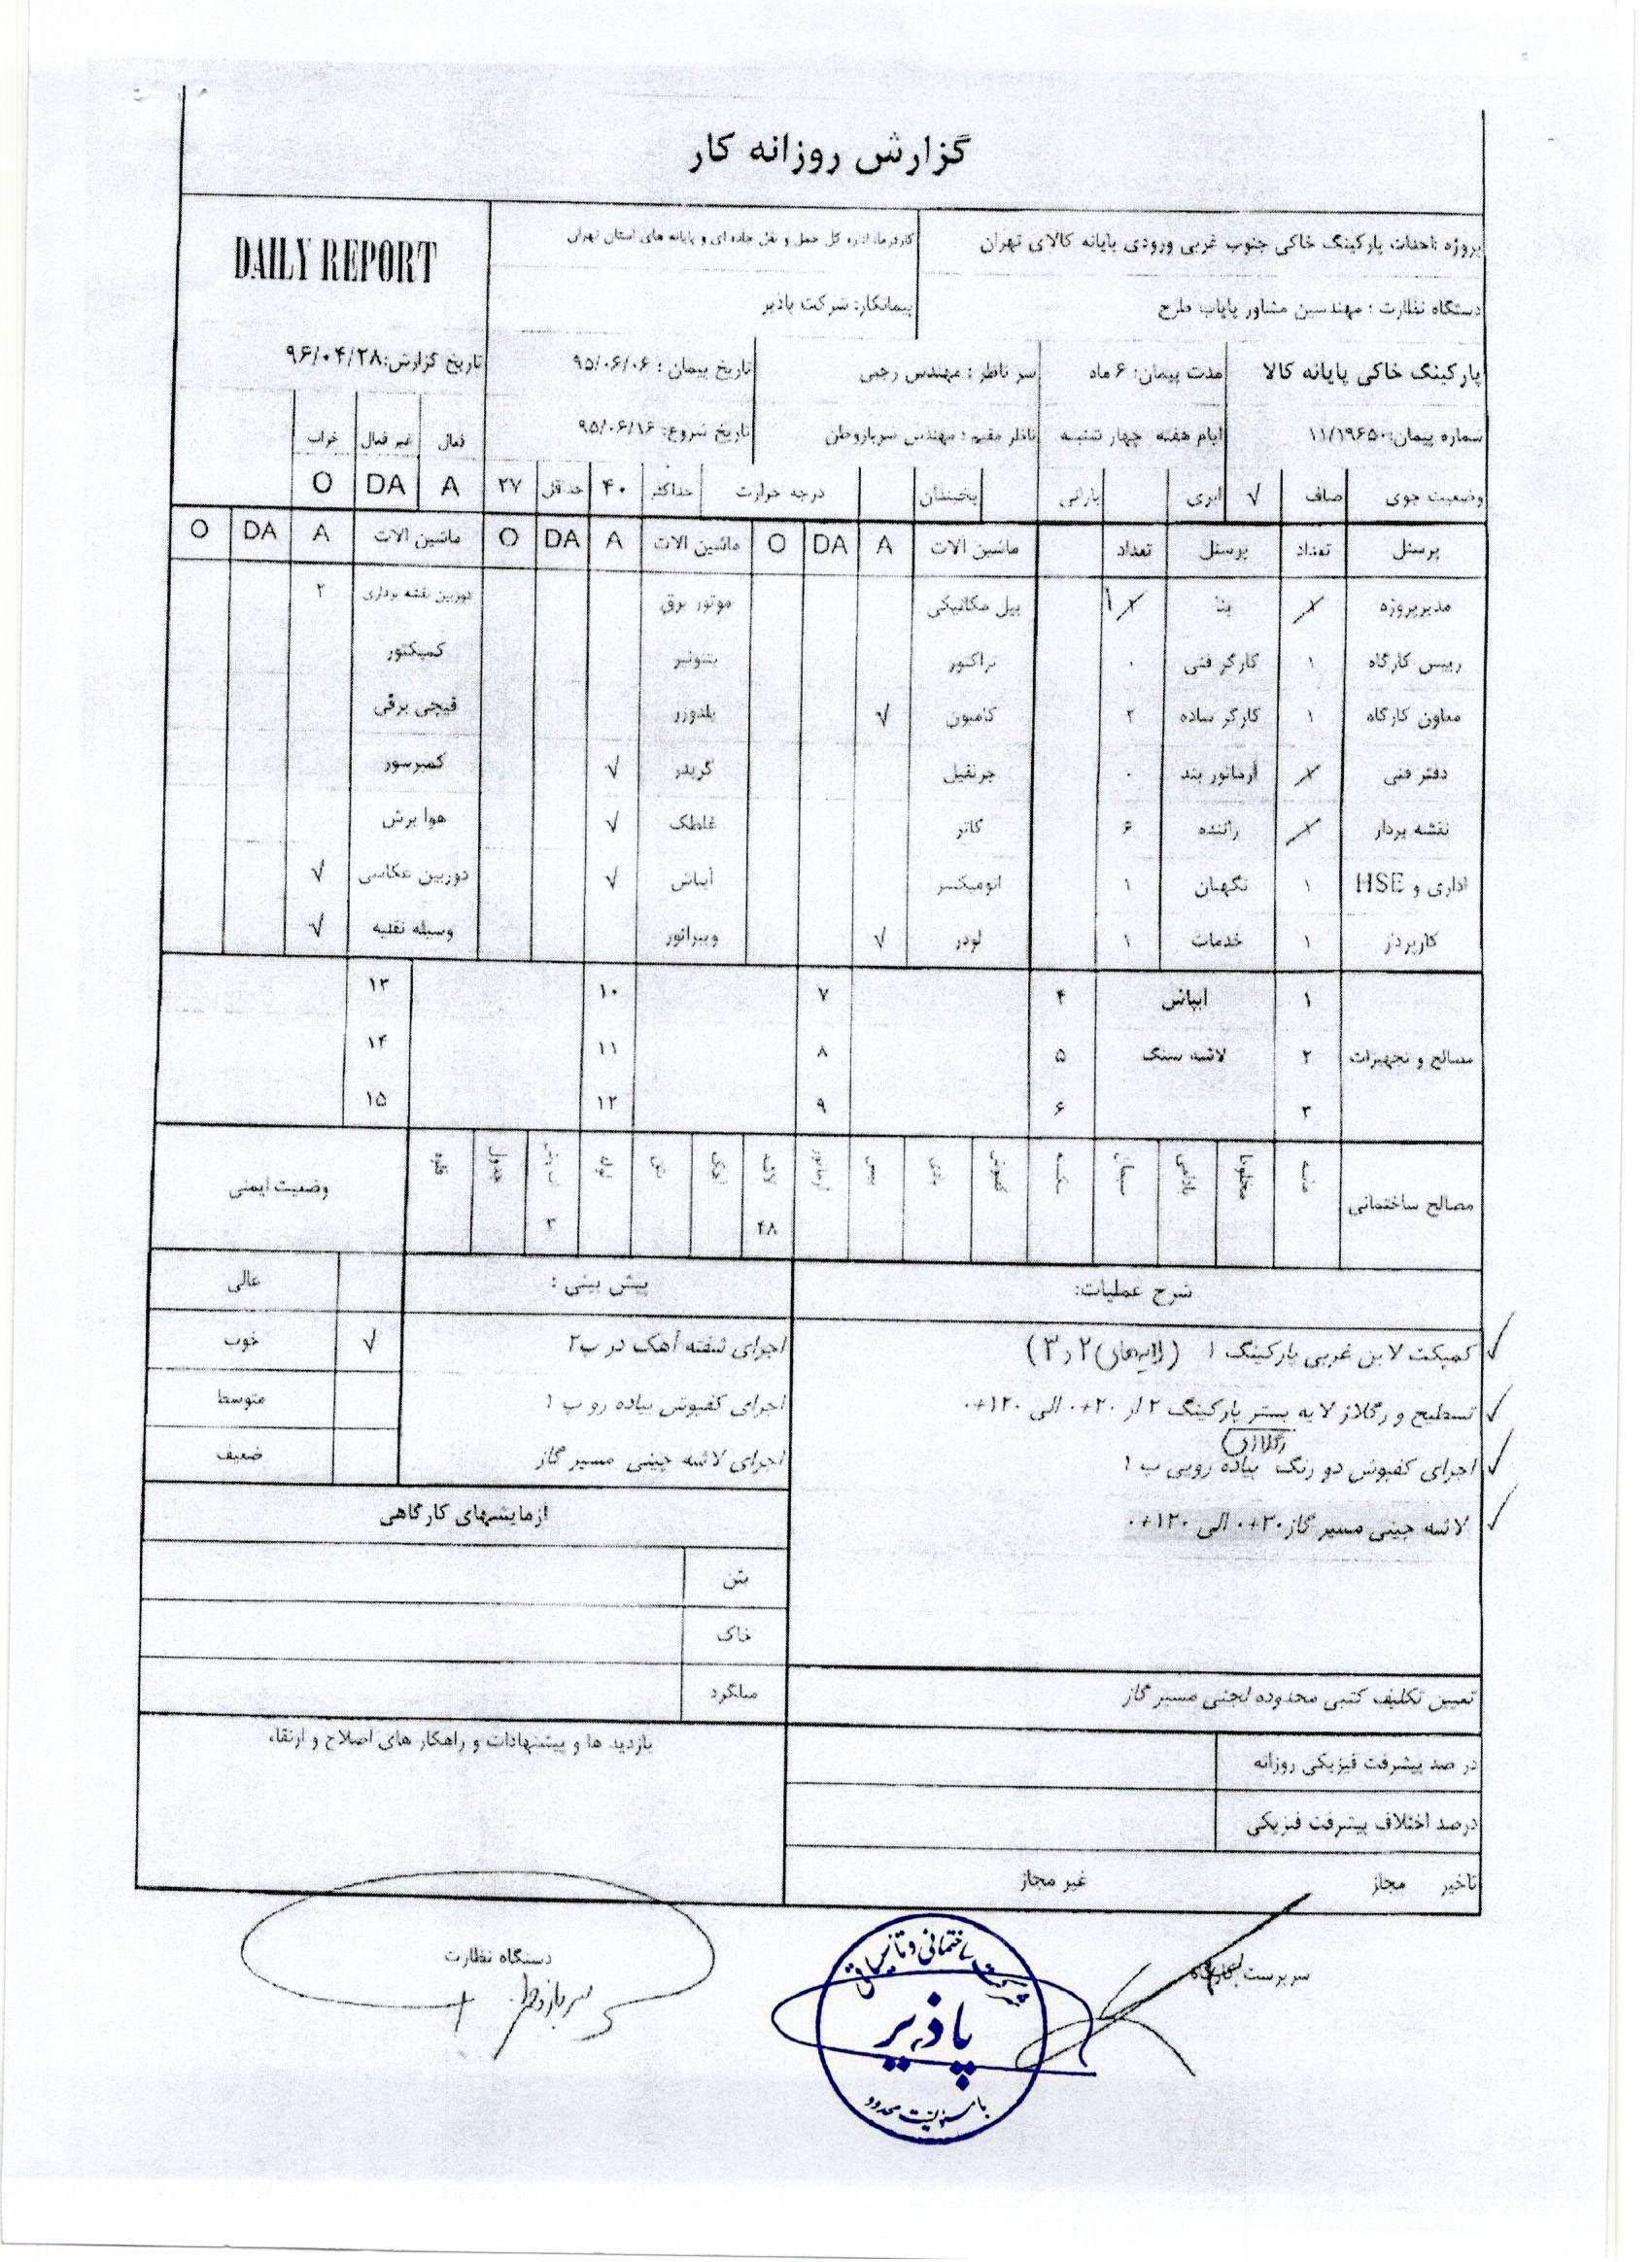 گزارش روزانه کار
پروژه :احداث پارکینگ خاکی جنوب غربی ورودی پایانه کالای تهران
کارفرما: اداره کل حمل و نقل جاده ای و پایانه های استان تهران
DAILY REPORT
دستگاه نظارت : مهندسین مشاور پایاب طرح
پیمانکار: شرکت پاذیر
پارکینگ خاکی پایانه کالا مدت پیمان: ۶ ماه سر ناظر : مهندس رجبی تاریخ پیمان : ۹۵/۰۶/۰۶ تاریخ گزارش:۹۶/۰۴/۲۸
شماره پیمان:۱۱/۱۹۶۵۰ ایام هفته چهار شنبه ناظر مقیم : مهندس سربازوطن تاریخ شروع: ۹۵/۰۶/۱۶ فعال غیر فعال خراب
وضعیت جوی صاف √ ابری بارانی یخبندان درجه حرارت حداکثر ۴۰ حداقل ۲۷ A DA O
پرسنل تعداد پرسنل تعداد ماشین الات A DA O ماشین الات A DA O ماشین الات A DA O
مدیرپروژه بنا ۱ بیل مکانیکی موتور برق دوربین نقشه برداری ۲
رییس کارگاه ۱ کارگر فنی ۰ تراکتور بتونیر کمپکتور
معاون کارگاه ۱ کارگر ساده ۲ کامیون √ بلدوزر قیچی برقی
دفتر فنی آرماتور بند ۰ جرثقیل گریدر √ کمپرسور
نقشه بردار راننده ۶ کاتر غلطک √ هوا برش
اداری و HSE ۱ نگهبان ۱ اتومیکسر آبپاش √ دوربین عکاسی √
کارپرداز ۱ خدمات ۱ لودر √ ویبراتور وسیله نقلیه √
۱ ابپاش ۴ ۷ ۱۰ ۱۳
مصالح و تجهیزات ۲ لاشه سنگ ۵ ۸ ۱۱ ۱۴
۳ ۶ ۹ ۱۲ ۱۵
مصالح ساختمانی ماسه مخلوط بادامی سیمان آرماتور لاشه لوله جدول وضعیت ایمنی
۴۸ ۳
شرح عملیات: پیش بینی : عالی
√ کمپکت لاین غربی پارکینگ ۱ (لایه‌های ۲ و ۳) اجرای شفته آهک در پ۲ √ خوب
√ تسطیح و رگلاژ لایه بستر پارکینگ ۲ از ۰+۲۰ الی ۰+۱۲۰ اجرای کفپوش پیاده رو پ ۱ متوسط
رگلاژی
√ اجرای کفپوش دو رنگ پیاده رویی پ ۱ اجرای لاشه چینی مسیر گاز ضعیف
√ لاشه چینی مسیر گاز ۰+۳۰ الی ۰+۱۲۰ ازمایشهای کارگاهی
بتن
خاک
میلگرد
تعیین تکلیف کتبی محدوده لجنی مسیر گاز
بازدید ها و پیشنهادات و راهکار های اصلاح و ارتقاء
در صد پیشرفت فیزیکی روزانه
درصد اختلاف پیشرفت فیزیکی
تاخیر مجاز غیر مجاز
سرپرست کارگاه
دستگاه نظارت
سربازوطن
ساختمانی و تاسیساتی
پاذیر
با مسئولیت محدود